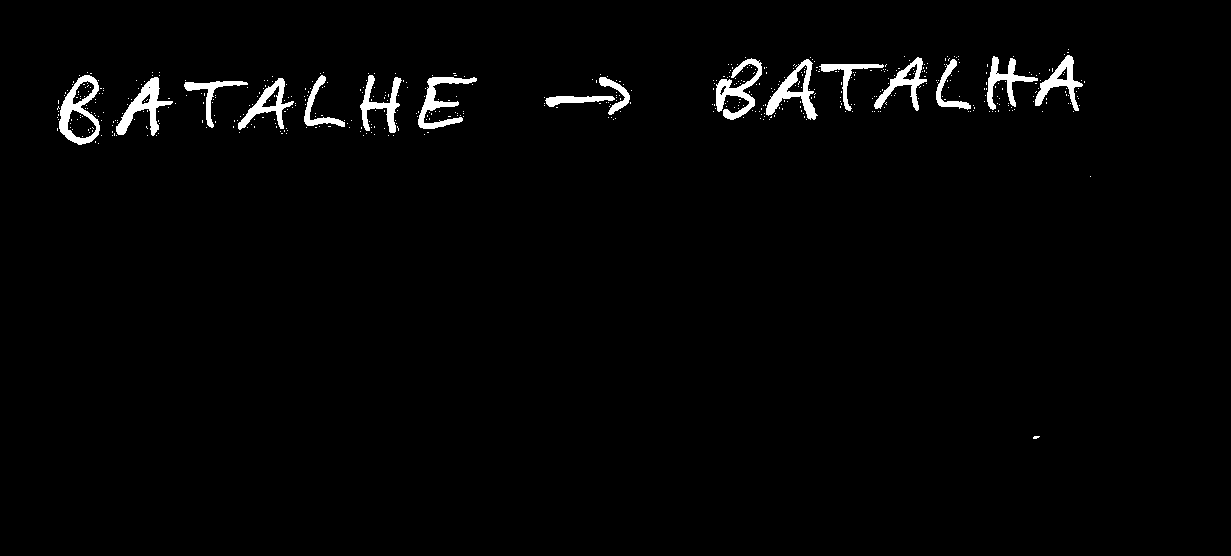 BATALHE → BATALHA